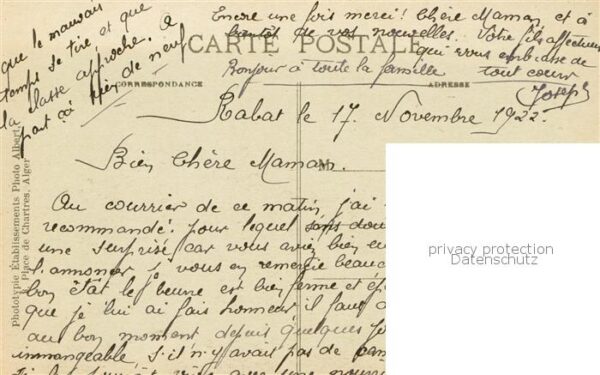 CARTE POSTALE
CORRESPONDANCE
ADRESSE
Rabat le 17 Novembre 1922.
Bien Chère Maman.
Au courrier de ce matin, j'ai
recommandé. pour lequel sans dou
une surprise car vous aviez bien
l'annoncer je vous en remercie beauc
bon état le beurre est bien ferme et
que je lui ai fais honneur il faut
au bon moment depuis quelques jo
immangeable, s'il n'y avait pas de
que le mauvais
temps se tire et que
la classe approche. a
part çà rien de neuf
Encore une fois merci! Chère Maman, et à
bientôt de vos nouvelles. Votre fils affectueux
qui vous embrasse de
tout cœur
Bonjour à toute la famille
Joseph
Phototypie Établissements Photo Albert
Place de Chartres, Alger
privacy protection
Datenschutz